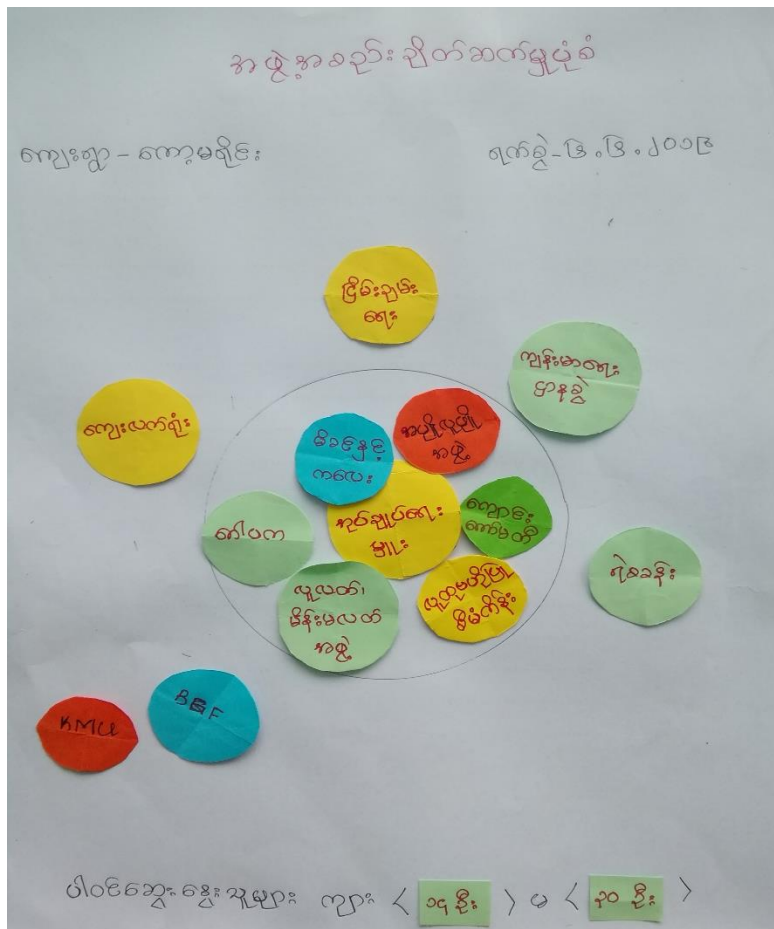 အဖွဲ့အစည်းချိတ်ဆက်မှုပုံစံ
ကျေးရွာ - ကော့မရိုင်း
ရက်စွဲ - ၆.၆.၂၀၁၆
ငြိမ်းချမ်း
ရေး
ကျန်းမာရေး
ဌာနခွဲ
ကျေးလက်ရုံး
မိခင်နှင့်
ကလေး
အပျိုလူပျို
အဖွဲ့
အုပ်ချုပ်ရေး
မှူး
ကျောင်း
ကော်မတီ
ဒါပက
လူလတ်၊
မိန်းမလတ်
အဖွဲ့
လူထုဗဟိုပြု
စီမံကိန်း
ရဲစခန်း
KMU
BGF
ပါဝင်ဆွေးနွေးသူများ ကျား < ၁၄ ဦး > မ < ၃၀ ဦး >